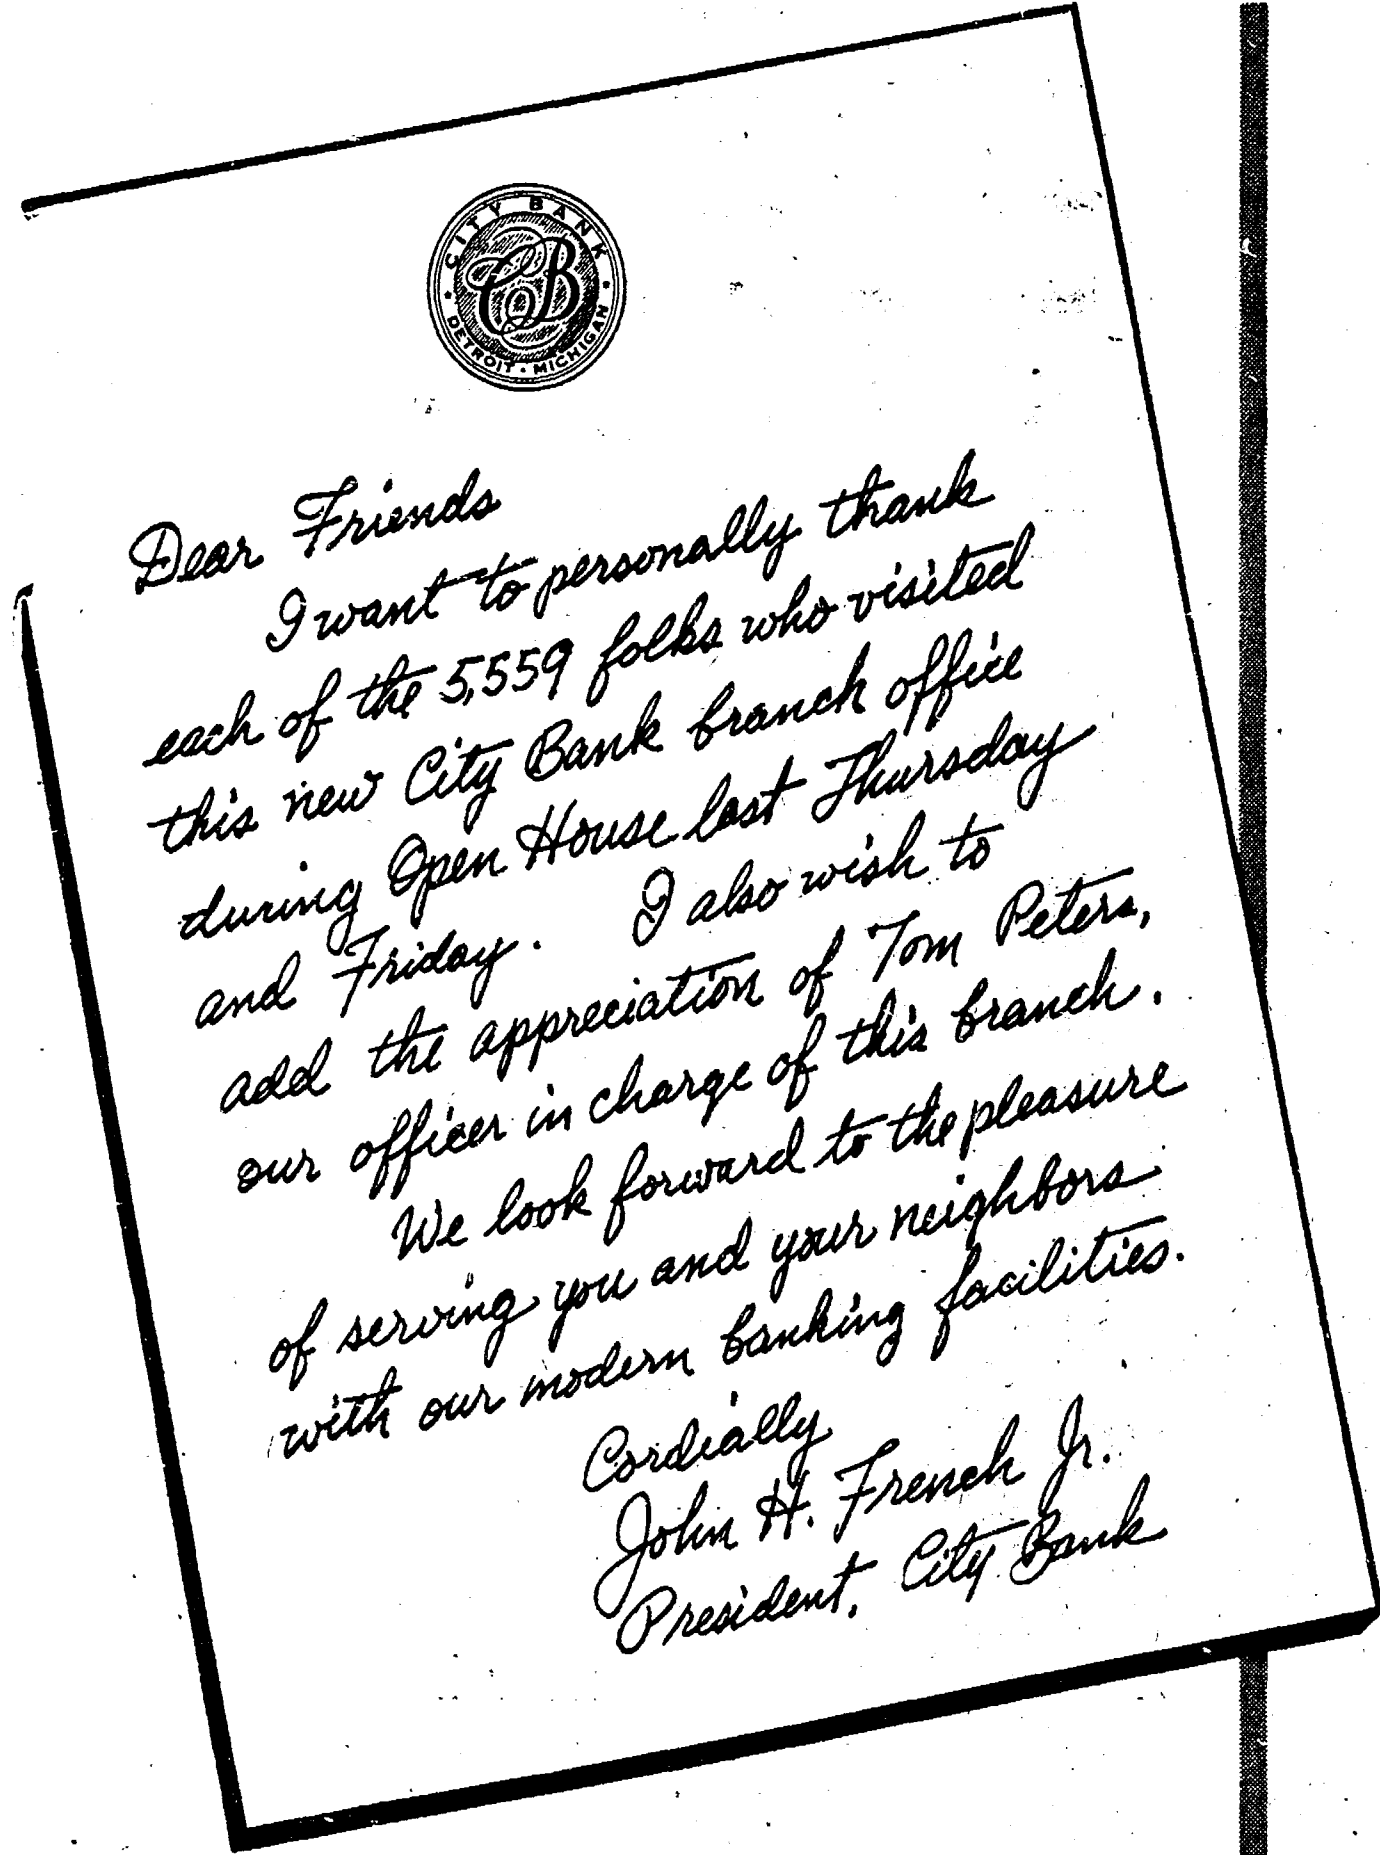 CITY BANK
CB
DETROIT · MICHIGAN
Dear Friends
I want to personally thank
each of the 5,559 folks who visited
this new City Bank branch office
during Open House last Thursday
and Friday. I also wish to
add the appreciation of Tom Peters,
our officer in charge of this branch.
We look forward to the pleasure
of serving you and your neighbors
with our modern banking facilities.
Cordially
John H. French Jr.
President, City Bank